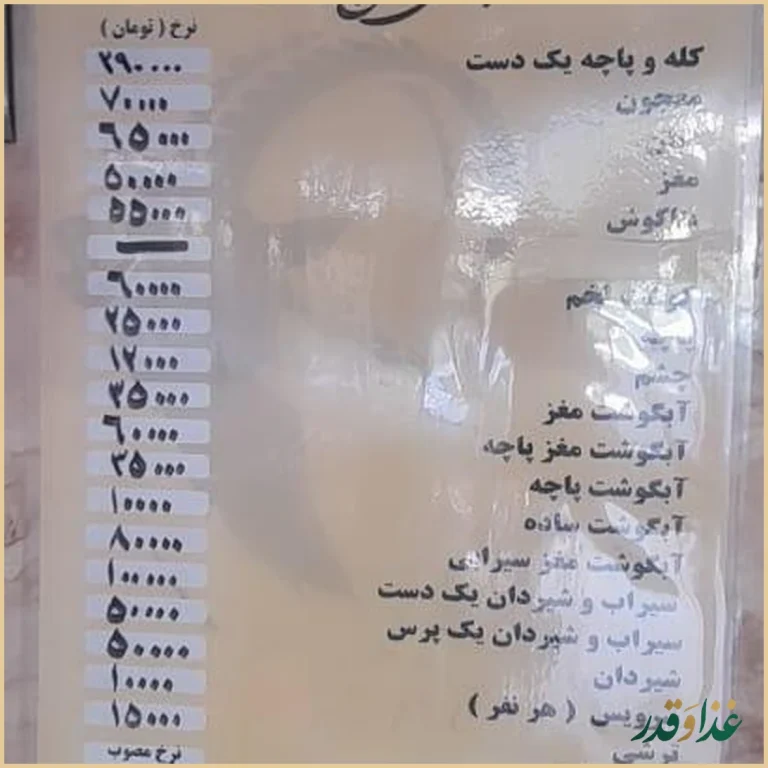 نرخ ( تومان )
کله و پاچه یک دست ۲۹۰۰۰۰
معجون ۷۰۰۰۰
۶۵۰۰۰
مغز ۵۰۰۰۰
بناگوش ۵۵۰۰۰
—
گوشت لخم ۶۰۰۰۰
پاچه ۲۵۰۰۰
چشم ۱۲۰۰۰
آبگوشت مغز ۳۵۰۰۰
آبگوشت مغز پاچه ۶۰۰۰۰
آبگوشت پاچه ۳۵۰۰۰
آبگوشت ساده ۱۰۰۰۰
آبگوشت مغز سیرابی ۸۰۰۰۰
سیراب و شیردان یک دست ۱۰۰۰۰۰
سیراب و شیردان یک پرس ۵۰۰۰۰
شیردان ۵۰۰۰۰
سرویس ( هر نفر ) ۱۰۰۰۰
ترشی ۱۵۰۰۰
نرخ مصوب
غذا و قدر